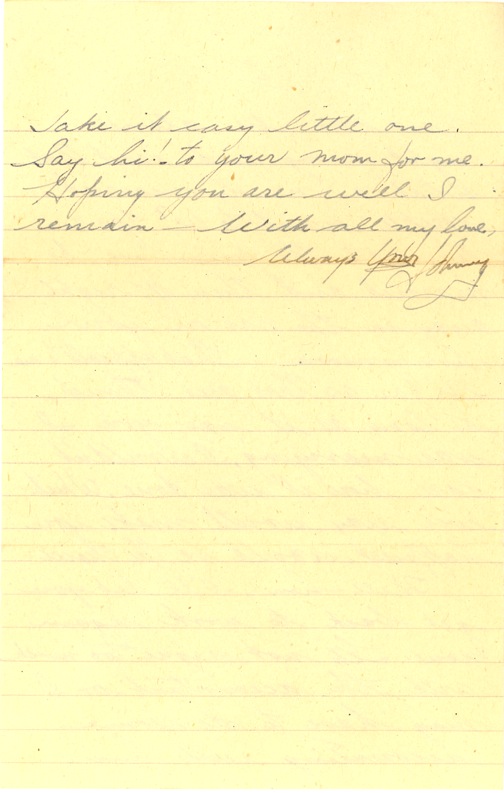 Take it easy little one.
Say hi! to your mom for me.
Hoping you are well I
remain — With all my love,
Always Your Johnny